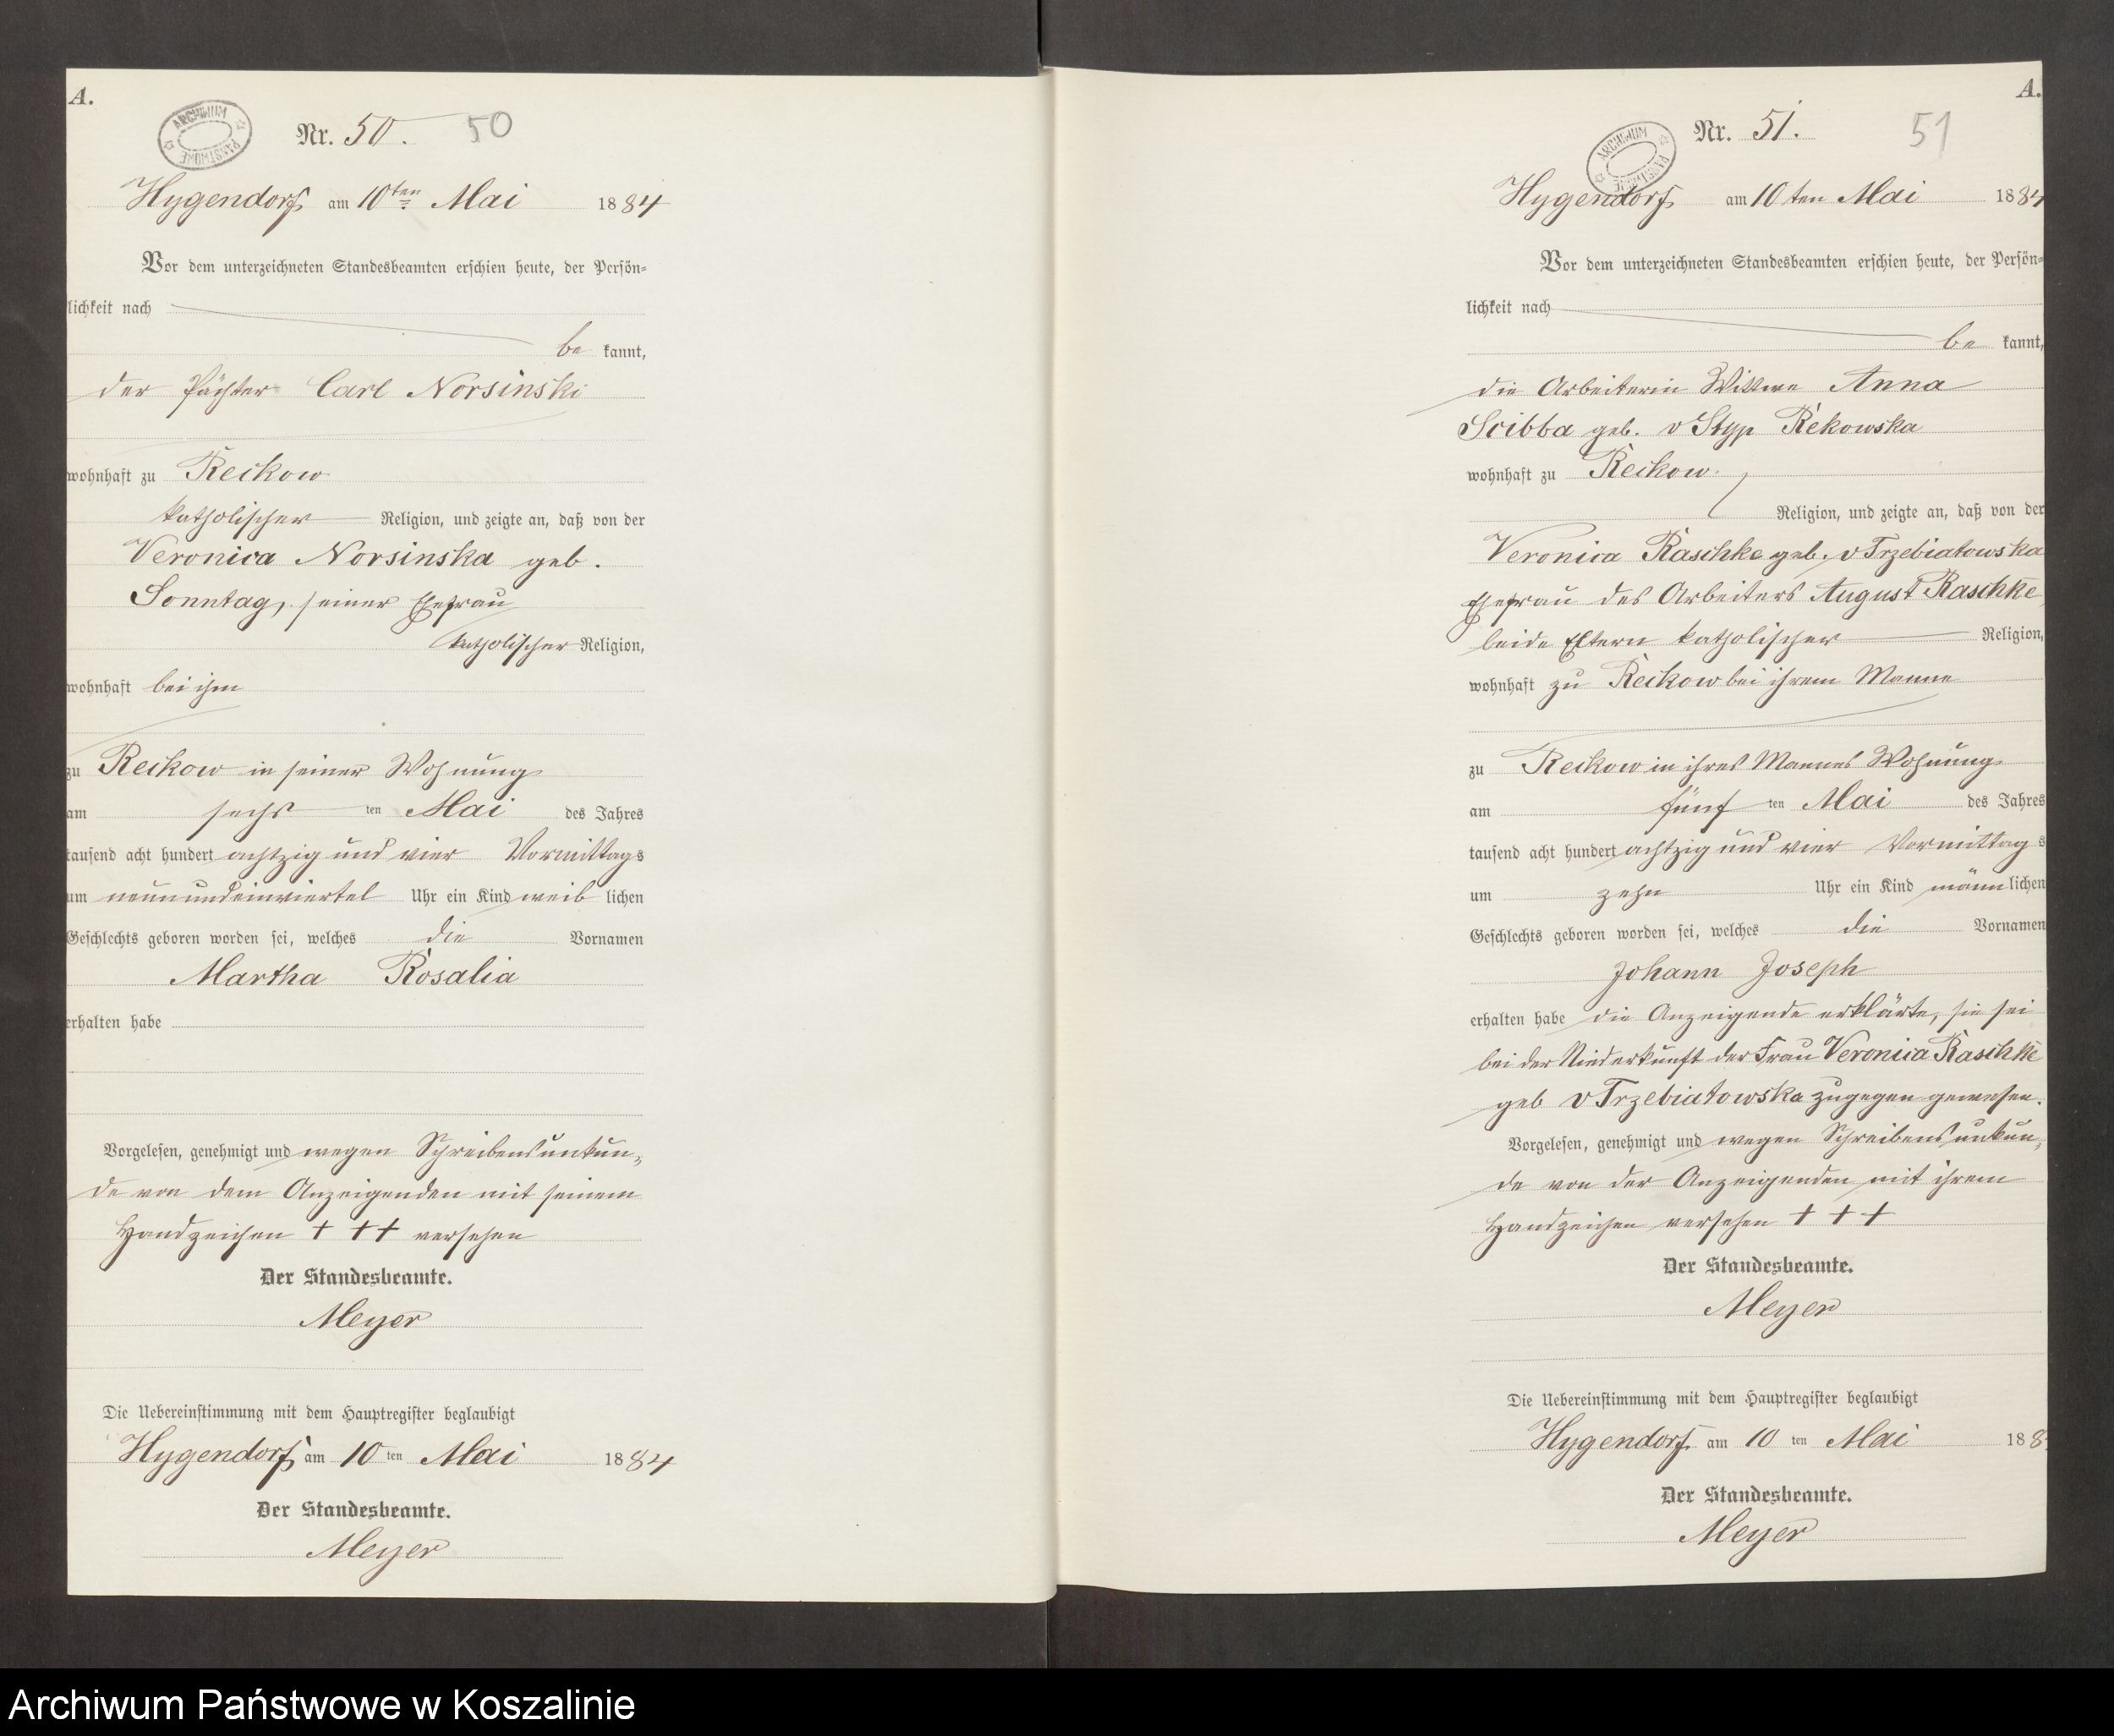 A.
ARCHIWUM PAŃSTWOWE
Nr. 50. 50
Hygendorf am 10ten Mai 1884
Vor dem unterzeichneten Standesbeamten erschien heute, der Persön=
lichkeit nach
be kannt,
der Pächter Carl Norsinski
wohnhaft zu Reckow
katholischer Religion, und zeigte an, daß von der
Veronica Norsinska geb.
Sonntag, seiner Ehefrau
katholischer Religion,
wohnhaft bei ihm
zu Reckow in seiner Wohnung
am sechs ten Mai des Jahres
tausend acht hundert achtzig und vier Vormittags
um neun und ein viertel Uhr ein Kind weib lichen
Geschlechts geboren worden sei, welches die Vornamen
Martha Rosalia
erhalten habe
Vorgelesen, genehmigt und wegen Schreibensunkun=
de von dem Anzeigenden mit seinem
Handzeichen + + + versehen
Der Standesbeamte.
Meyer
Die Uebereinstimmung mit dem Hauptregister beglaubigt
Hygendorf am 10 ten Mai 1884
Der Standesbeamte.
Meyer
A.
ARCHIWUM PAŃSTWOWE
Nr. 51. 51
Hygendorf am 10ten Mai 1884
Vor dem unterzeichneten Standesbeamten erschien heute, der Persön=
lichkeit nach
be kannt,
die Arbeiterin Wittwe Anna
Scibba geb. v Styp Rekowska
wohnhaft zu Reckow
Religion, und zeigte an, daß von der
Veronica Raschke geb. v Trzebiatowska
Ehefrau des Arbeiters August Raschke,
beide Eltern katholischer Religion,
wohnhaft zu Reckow bei ihrem Manne
zu Reckow in ihres Mannes Wohnung
am fünf ten Mai des Jahres
tausend acht hundert achtzig und vier Vormittag s
um zehn Uhr ein Kind männ lichen
Geschlechts geboren worden sei, welches die Vornamen
Johann Joseph
erhalten habe die Anzeigende erklärte, sie sei
bei der Niederkunft der Frau Veronica Raschke
geb v Trzebiatowska zugegen gewesen.
Vorgelesen, genehmigt und wegen Schreibensunkun=
de von der Anzeigenden mit ihrem
Handzeichen versehen + + +
Der Standesbeamte.
Meyer
Die Uebereinstimmung mit dem Hauptregister beglaubigt
Hygendorf am 10 ten Mai 188
Der Standesbeamte.
Meyer
Archiwum Państwowe w Koszalinie